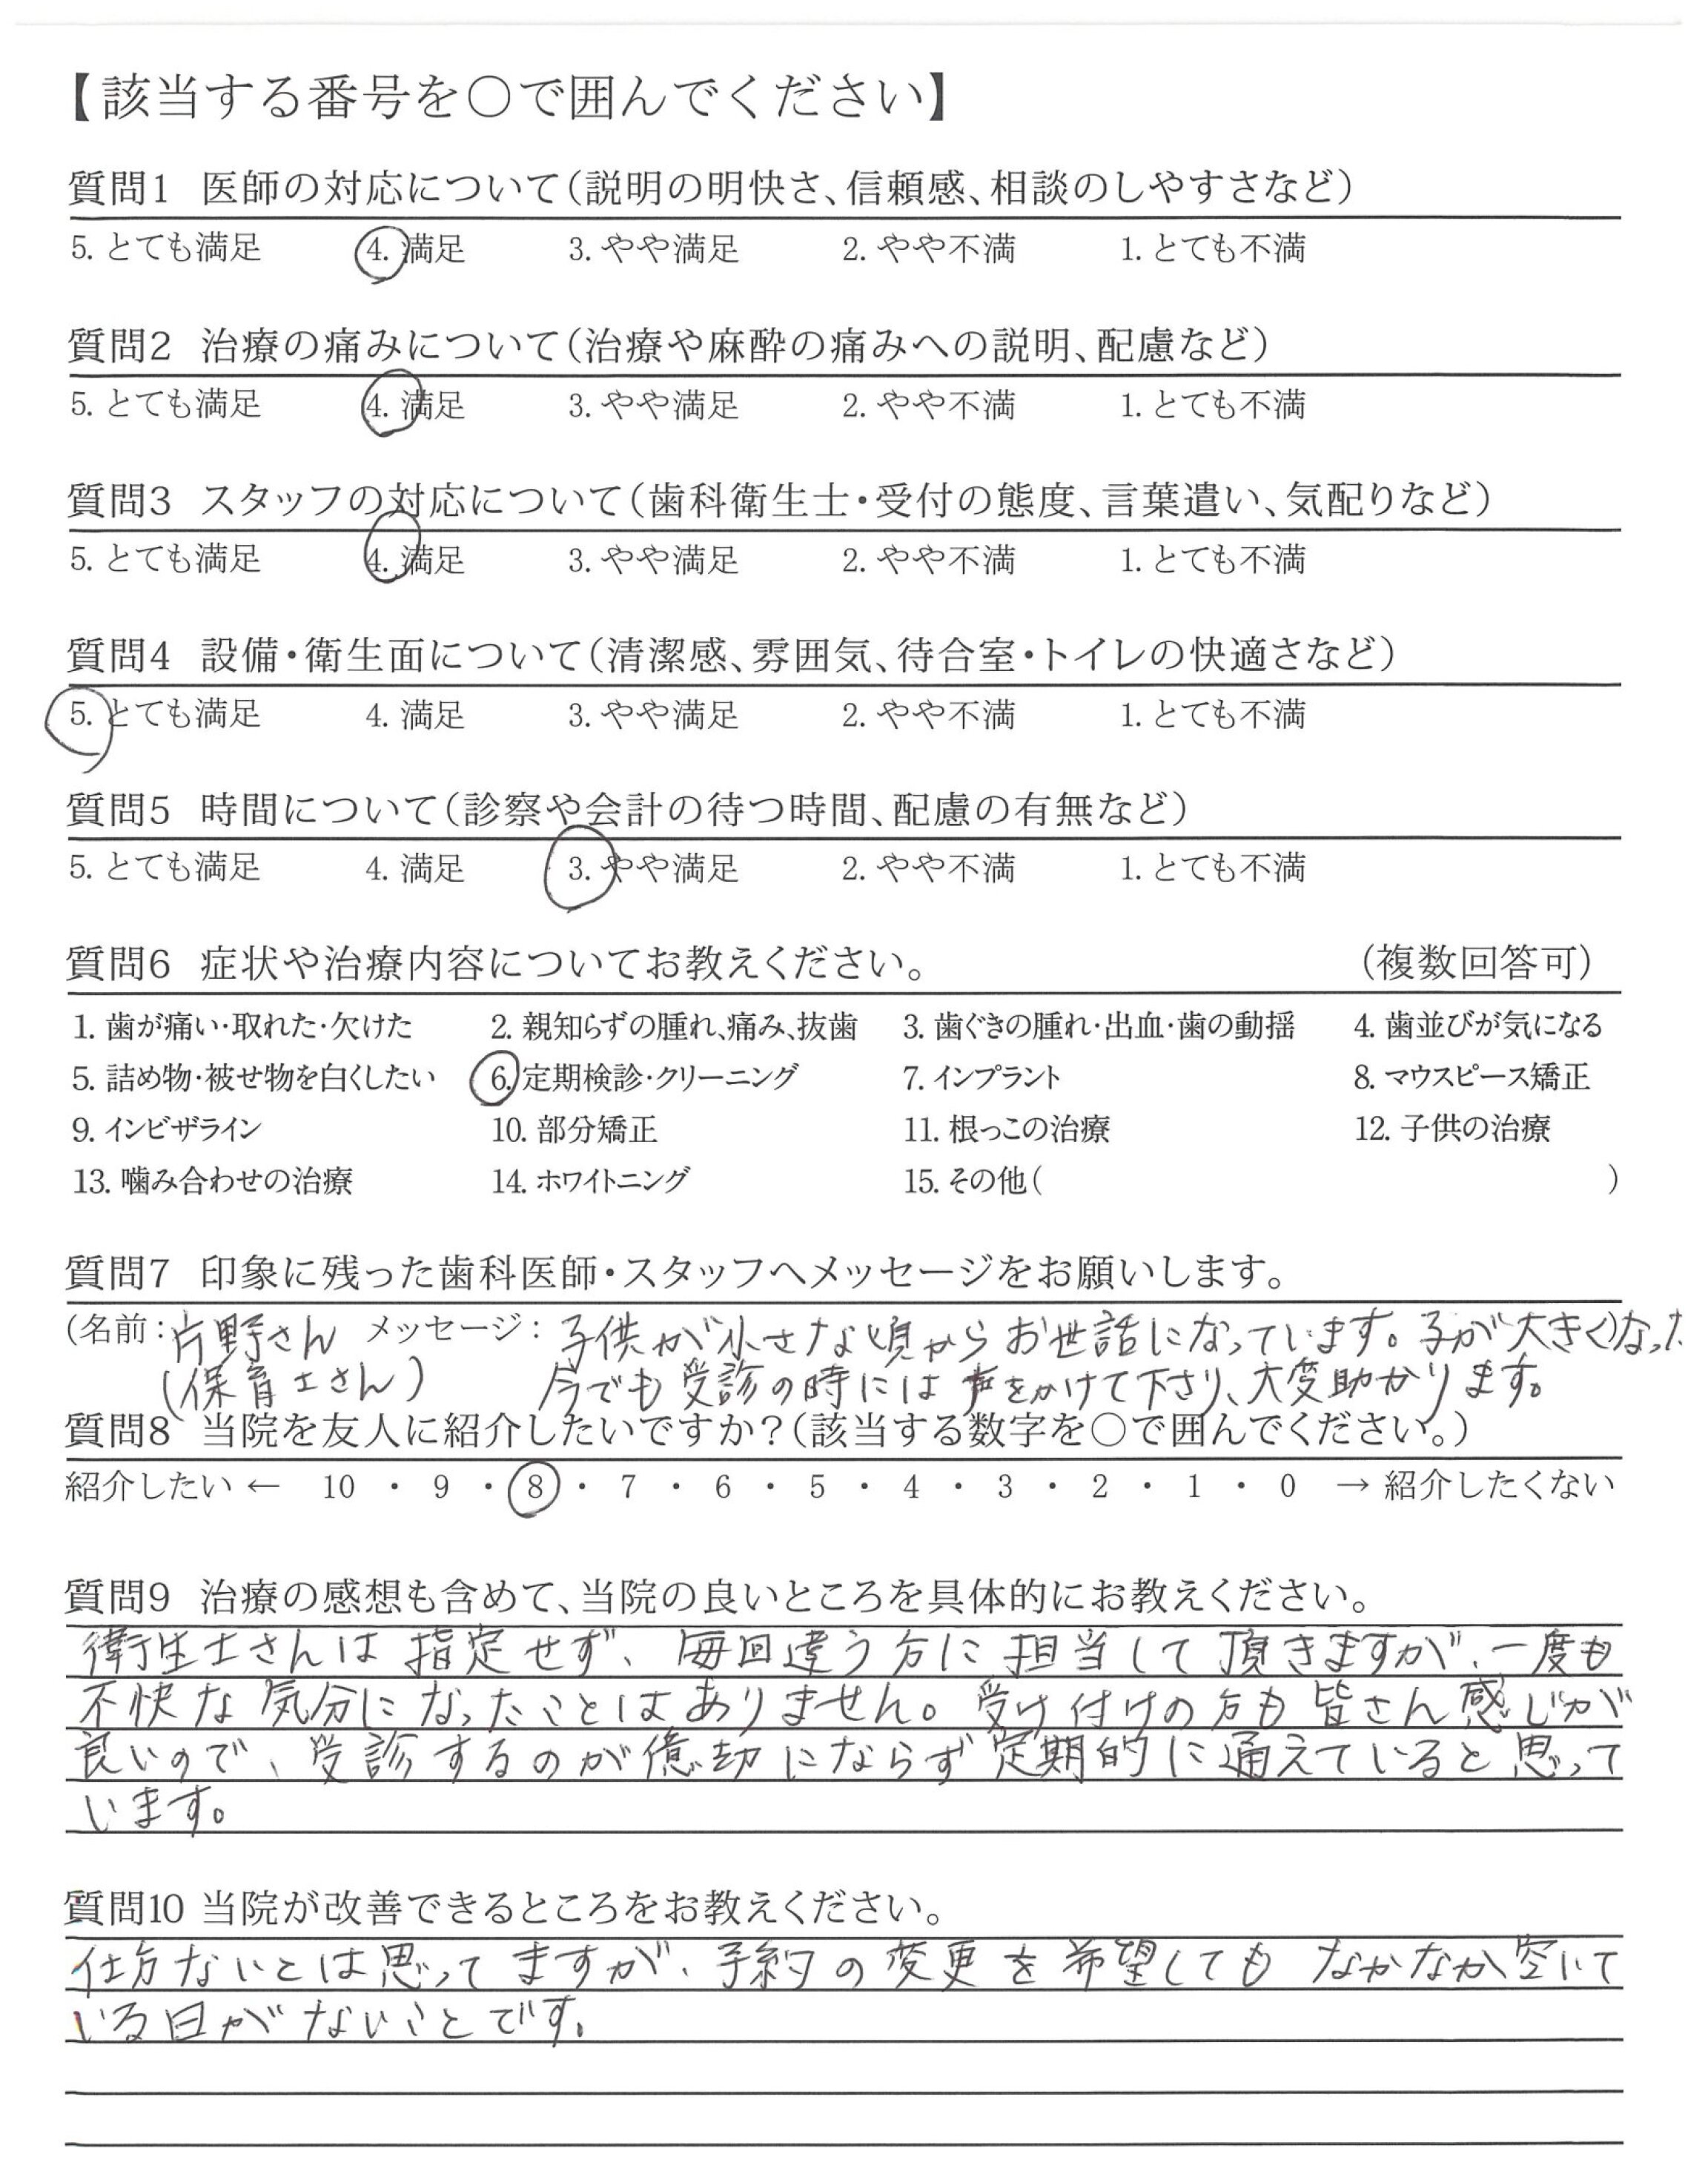 【該当する番号を○で囲んでください】
質問1 医師の対応について（説明の明快さ、信頼感、相談のしやすさなど）
5. とても満足 4. 満足 3. やや満足 2. やや不満 1. とても不満
質問2 治療の痛みについて（治療や麻酔の痛みへの説明、配慮など）
5. とても満足 4. 満足 3. やや満足 2. やや不満 1. とても不満
質問3 スタッフの対応について（歯科衛生士・受付の態度、言葉遣い、気配りなど）
5. とても満足 4. 満足 3. やや満足 2. やや不満 1. とても不満
質問4 設備・衛生面について（清潔感、雰囲気、待合室・トイレの快適さなど）
5. とても満足 4. 満足 3. やや満足 2. やや不満 1. とても不満
質問5 時間について（診察や会計の待つ時間、配慮の有無など）
5. とても満足 4. 満足 3. やや満足 2. やや不満 1. とても不満
質問6 症状や治療内容についてお教えください。 （複数回答可）
1. 歯が痛い・取れた・欠けた 2. 親知らずの腫れ、痛み、抜歯 3. 歯ぐきの腫れ・出血・歯の動揺 4. 歯並びが気になる
5. 詰め物・被せ物を白くしたい 6. 定期検診・クリーニング 7. インプラント 8. マウスピース矯正
9. インビザライン 10. 部分矯正 11. 根っこの治療 12. 子供の治療
13. 噛み合わせの治療 14. ホワイトニング 15. その他（ ）
質問7 印象に残った歯科医師・スタッフへメッセージをお願いします。
（名前：片野さん メッセージ：子供が小さな頃からお世話になっています。子が大きくなった）
（保育士さん） 今でも受診の時には声をかけて下さり、大変助かります。
質問8 当院を友人に紹介したいですか？（該当する数字を○で囲んでください。）
紹介したい ← 10 ・ 9 ・ 8 ・ 7 ・ 6 ・ 5 ・ 4 ・ 3 ・ 2 ・ 1 ・ 0 → 紹介したくない
質問9 治療の感想も含めて、当院の良いところを具体的にお教えください。
衛生士さんは指定せず、毎回違う方に担当して頂きますが、一度も
不快な気分になったことはありません。受け付けの方も皆さん感じが
良いので、受診するのが億劫にならず定期的に通えていると思って
います。
質問10 当院が改善できるところをお教えください。
仕方ないとは思ってますが、予約の変更を希望してもなかなか空いて
いる日がないことです。